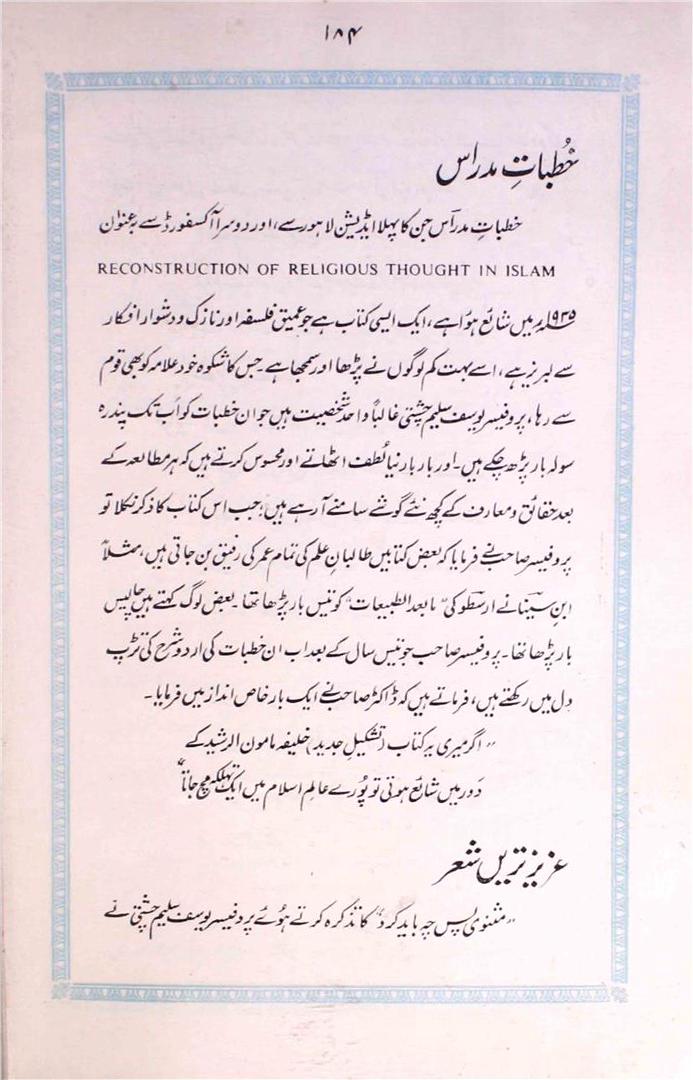 ۱۸۴
خُطباتِ مدراس
خطباتِ مدراس جن کا پہلا ایڈیشن لاہور سے، اور دوسرا آکسفورڈ سے بہ عنوان
RECONSTRUCTION OF RELIGIOUS THOUGHT IN ISLAM
۱۹۳۵ء میں شائع ہوُا ہے، ایک ایسی کتاب ہے جو عمیق فلسفہ اور نازک و دشوار افکار
سے لبریز ہے، اسے بہت کم لوگوں نے پڑھا اور سمجھا ہے۔ جس کا شکوہ خود علامہ کو بھی قوم
سے رہا، پروفیسر یوسف سلیم چشتی غالباً واحد شخصیت ہیں جو ان خطبات کو اَب تک پندرہ
سولہ بار پڑھ چکے ہیں۔ اور بار بار نیا لُطف اٹھاتے اور محسوس کرتے ہیں کہ ہر مطالعہ کے
بعد حقائق و معارف کے کچھ نئے گوشے سامنے آ رہے ہیں؛ جب اس کتاب کا ذکر نکلا تو
پروفیسر صاحب نے فرمایا کہ بعض کتابیں طالبانِ علم کی تمام عمر کی رفیق بن جاتی ہیں، مثلاً
ابنِ سینا نے ارسطو کی "مابعد الطبیعات" کو تیس بار پڑھا تھا۔ بعض لوگ کہتے ہیں چالیس
بار پڑھا تھا۔ پروفیسر صاحب جو تیس سال کے بعد اب ان خطبات کی اردو شرح کی تڑپ
دِل میں رکھتے ہیں، فرماتے ہیں کہ ڈاکٹر صاحب نے ایک بار خاص انداز میں فرمایا۔
"اگر میری یہ کتاب (تشکیلِ جدید) خلیفہ مامون الرشید کے
دَور میں شائع ہوتی تو پُورے عالمِ اسلام میں ایک تہلکہ مچ جاتا"
عزیز ترین شعر
"مثنوی پس چہ باید کرد" کا تذکرہ کرتے ہُوئے پروفیسر یوسف سلیم چشتی نے